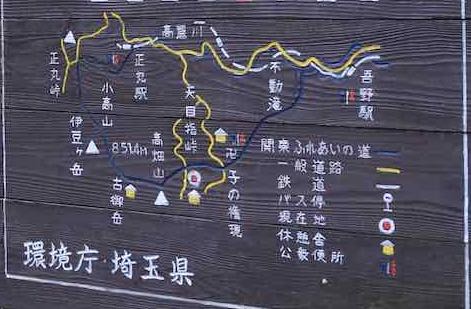 高麗川
正丸峠
正丸駅
小高山
伊豆ヶ岳
851.4m
高畑山
古御岳
天目指峠
不動滝
吾野駅
卍
子の権現
関東ふれあいの道
一般道路
鉄道
バス停
現在地
休憩舎
公衆便所
環境庁 埼玉県